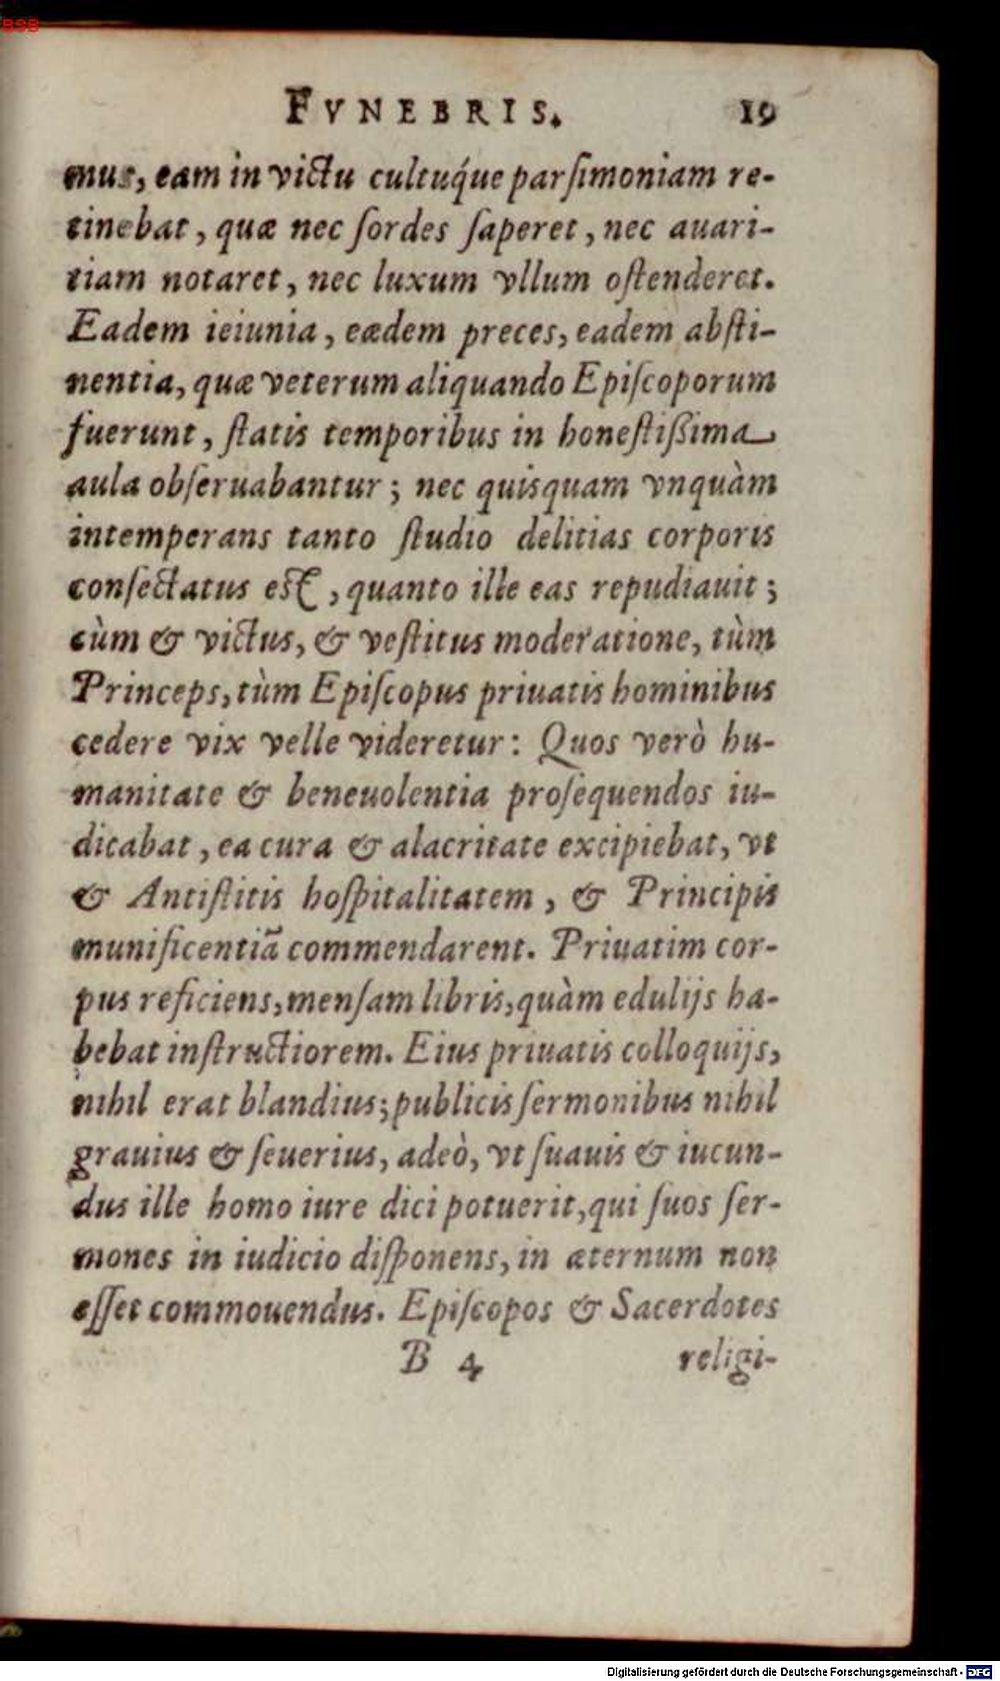 BSB
FVNEBRIS. 19
mus, eam in victu cultuq́ue parſimoniam re-
tinebat, quæ nec ſordes ſaperet, nec auari-
tiam notaret, nec luxum vllum oſtenderet.
Eadem ieiunia, eædem preces, eadem abſti-
nentia, quæ veterum aliquando Epiſcoporum
fuerunt, ſtatis temporibus in honeſtißima
aula obſeruabantur; nec quisquam vnquàm
intemperans tanto ſtudio delitias corporis
conſectatus eſt, quanto ille eas repudiauit;
cùm & victus, & veſtitus moderatione, tùm
Princeps, tùm Epiſcopus priuatis hominibus
cedere vix velle videretur: Quos verò hu-
manitate & beneuolentia proſequendos iu-
dicabat, ea cura & alacritate excipiebat, vt
& Antiſtitis hoſpitalitatem, & Principis
munificentiā commendarent. Priuatim cor-
pus reficiens, menſam libris, quàm edulijs ha-
bebat inſtructiorem. Eius priuatis colloquijs,
nihil erat blandius; publicis ſermonibus nihil
grauius & ſeuerius, adeò, vt ſuauis & iucun-
dus ille homo iure dici potuerit, qui ſuos ſer-
mones in iudicio diſponens, in æternum non
eſſet commouendus. Epiſcopos & Sacerdotes
B 4 religi-
Digitalisierung gefördert durch die Deutsche Forschungsgemeinschaft - DFG